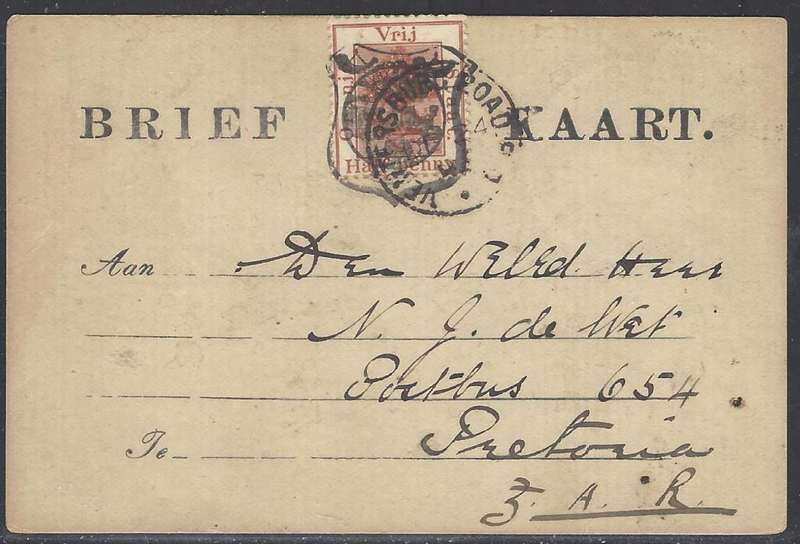 Vrij
Half Penny
ROAD
BRIEF KAART.
Aan Den WelEd. Heer
N. J. de Wet
Postbus 654
Te Pretoria
Z. A. R.